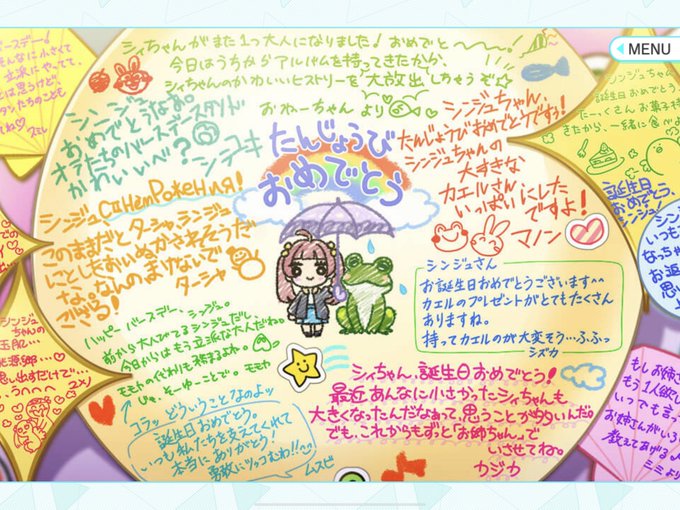 シィちゃんがまた1つ大人になりました! おめでと〜〜〜!
今日はうちからアルバムを持ってきたから、
シィちゃんのかわいいヒストリーを大放出しちゃうぞ☆
おねーちゃんより
MENU
シンジュなお。
おめでとうなお。
オラたちのバースデースタンド
かわいいべ?
シデユキ
たんじょうび
おめでとう
シンジュちゃん、
たんじょうびおめでとうですぅ!
シンジュちゃんの
大すきな
カエルさん
いっぱいにした
ですよ!
マノン
シンジュ
このままだとターシャ、シンジュ
にとしおいぬかされそうだ
な、なんのまけないで
ござる!
ターシャ
シンジュさん
お誕生日おめでとうございます^^
カエルのプレゼントがとてもたくさん
ありますね。
持ってカエルのが大変そう…ふふっ
シズカ
ハッピーバースデー、シンジュ。
前から大人びてるシンジュだし
今日からはもう立派な大人だね。
モモカの代わりも務まるよね。
じゃ、そーゆーことで。モモカ
コラッ どういうことなのよッ
誕生日おめでとう。
いつも私たちを支えてくれて
本当にありがとう!
勇敢にツッコむわ!!
ムスビ
シィちゃん、誕生日おめでとう!
最近あんなに小さかったシィちゃんも
大きくなったんだなぁって、思うことが多いんだ。
でも、これからもずっと「お姉ちゃん」で
いさせてね。
カジカ
バースデー!
そんなに小さくて
立派にやってて、
スミレ
シンジュちゃん
誕生日おめでとう
たーっくさん、お菓子持って
きたから、一緒に食べよ
誕生日
おめでとう、
シンジュ
シンジュ
いつも
なっちゃ
お返し
思い
シンジュ
ちゃんの
桃源郷…♡
思い出すだけで…
うへへへ
ユメリ
もしお姉さ
もう1人欲し
いつでも言
お姉さんがいろ
教えてあげる♪
ミミより